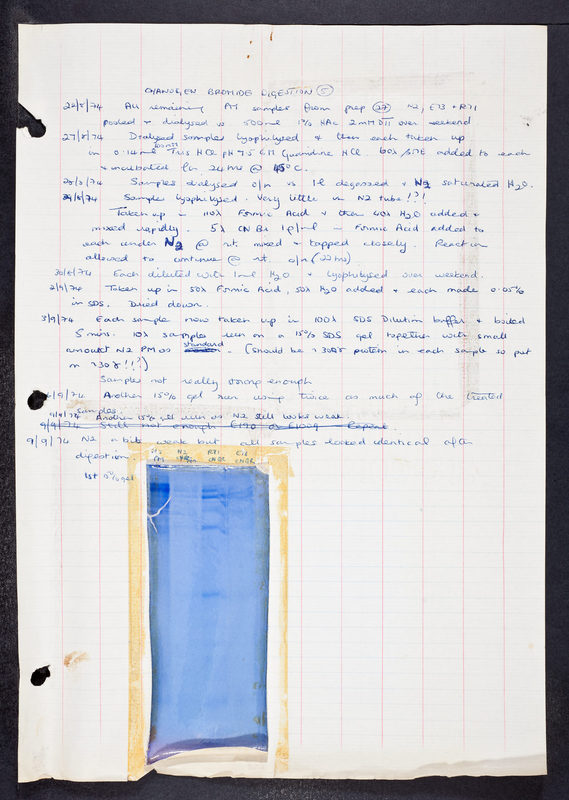 CYANOGEN BROMIDE DIGESTION (5)
22/8/74 All remaining PM samples from prep (27) N2, E73 + R71
pooled + dialysed vs 500ml 1% HAc 2mM DTT over weekend
27/8/74 Dialysed samples lyophilysed & then each taken up
in 0.14ml 500mM Tris HCl pH 7.5 6M Guanidine HCl. 60λ βME added to each
+ incubated for 24 hrs @ 45°C.
28/8/74 Samples dialysed o/n vs 1l degassed + N2 saturated H2O.
29/8/74 Samples lyophilysed. Very little in N2 tube!?!
Taken up in 110λ Formic Acid & then 40λ H2O added +
mixed rapidly. 5λ CNBr 1g/ml in Formic Acid added to
each under N2 @ r.t. mixed & capped closely. Reaction
allowed to continue @ r.t. o/n (22 hrs)
30/8/74 Each diluted with 1ml H2O + lyophilysed over weekend.
2/9/74 Taken up in 50λ Formic Acid, 50λ H2O added + each made 0.05%
in SDS. Dried down.
3/9/74 Each sample now taken up in 100λ SDS Dilution buffer + boiled
5 mins. 10λ samples run on a 15% SDS gel together with small
amount N2 PM as standard. (Should be >30γ protein in each sample so put
on >30γ!!?)
Samples not really strong enough
4/9/74 Another 15% gel run using twice as much of the treated
samples.
9/9/74 Another 15% gel run as N2 still looks weak.
9/9/74 Still not enough Repeat
9/9/74 N2 a bit weak but all samples looked identical after
digestion.
N2 PM N2 CNBr R71 CNBr CNBR
1st 15% gel